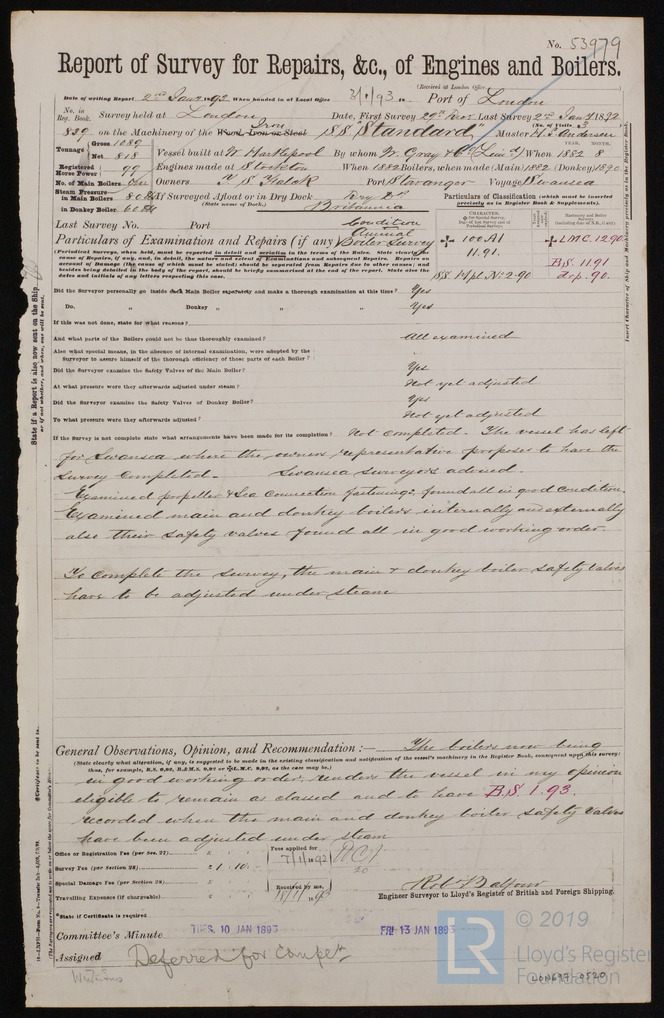 No. 53979
Report of Survey for Repairs, &c., of Engines and Boilers.
(Received at London Office
Date of writing Report 2nd Jany 1893 When handed in at Local Office 3/1/93 Port of London
No. in Reg. Book. Survey held at London Date, First Survey 29th Decr Last Survey 2nd Jany 1892
(No. of Visits 3)
839 on the Machinery of the Wood, Iron or Steel Iron SS "Standard" Master H. S. Andersen
Tonnage Gross 1089 Net 818 Vessel built at W Hartlepool By whom W. Gray & Co (Limd) When 1882 YEAR. MONTH. 8
Registered Horse Power 99 Engines made at Stockton When 1882 Boilers, when made (Main) 1882 (Donkey) 1890
No. of Main Boilers One Owners Port Stavanger Voyage Swansea
Steam Pressure in Main Boilers 80 lbs If Surveyed Afloat or in Dry Dock Dry Dk
(State name of Dock.) Britannia
in Donkey Boiler 60 lbs
Particulars of Classification (which must be inserted precisely as in Register Book & Supplements).
Last Survey No. Port
Particulars of Examination and Repairs (if any) Condition & Annual Boiler Survey
100 A1 LMC 12.90
11.91. BS 11.91
SS Hpl No 2-90
Did the Surveyor personally go inside each Main Boiler separately and make a thorough examination at this time? Yes
Do. " Donkey " " " Yes
If this was not done, state for what reasons?
And what parts of the Boilers could not be thus thoroughly examined? All examined
Also what special means, in the absence of internal examination, were adopted by the
Surveyor to assure himself of the thorough efficiency of those parts of each Boiler?
Did the Surveyor examine the Safety Valves of the Main Boiler? Yes
At what pressure were they afterwards adjusted under steam? Not yet adjusted
Did the Surveyor examine the Safety Valves of Donkey Boiler? Yes
To what pressure were they afterwards adjusted? Not yet adjusted
If the Survey is not complete state what arrangements have been made for its completion? Not completed. The vessel has left
for Swansea where the owners representative proposes to have the
survey completed. Swansea surveyors advised.
Examined propeller & Sea Connection fastenings, found all in good condition.
Examined main and donkey boilers internally and externally
also their safety valves found all in good working order.
To complete the survey, the main & donkey boiler safety valves
have to be adjusted under steam
General Observations, Opinion, and Recommendation:— The boilers now being
(State clearly what alteration, if any, is suggested to be made in the existing classification and notification of the vessel's machinery in the Register Book, consequent upon this survey:
in good working order, renders the vessel in my opinion
eligible to remain as classed and to have B.S 1.93.
recorded when the main and donkey boiler safety valves
have been adjusted under steam
Office or Registration Fee (per Sec. 27) Fees applied for
Survey Fee (per Section 28) £ 1 : 10 :
Special Damage Fee (per Section 28) Received by me,
Travelling Expenses (if chargeable)
Robt Balfour
Engineer Surveyor to Lloyd's Register of British and Foreign Shipping.
*State if Certificate is required
Committee's Minute TUES. 10 JAN 1893 FRI 13 JAN 1893
Assigned Deferred for Complt
State if a Report is also now sent on the Ship,
© 2019
LR Lloyd's Register Foundation
LON697-0520